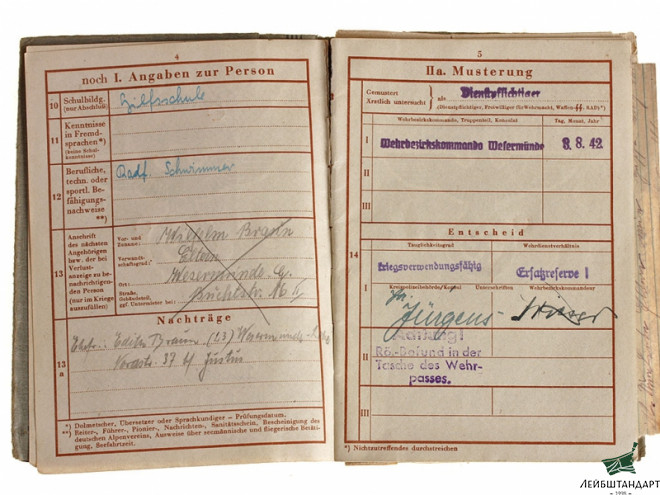 4
noch I. Angaben zur Person
10
Schulbildg.
(nur Abschluß)
Hilfsschule
11
Kenntnisse
in Fremd-
sprachen*)
(keine Schul-
kenntnisse)
12
Berufliche,
techn. oder
sportl. Be-
fähigungs-
nachweise
**)
Radf. Schwimmer
13
Anschrift
des nächsten
Angehörigen
bzw. der bei
Verlust-
anzeige zu be-
nachrichtigen-
den Person
(nur im Kriege
auszufüllen)
Vor- und
Zuname:
Wilhelm Braun
Verwandt-
schaftsgrad:
Eltern
Ort:
Wesermünde-G.
Straße,
Gebäudeteil,
ggf. Untermieter bei:
Nachträge
13
a
Ehefr.: Edith Braun,
*) Dolmetscher, Übersetzer oder Sprachkundiger – Prüfungsdatum.
**) Reiter-, Führer-, Pionier-, Nachrichten-, Sanitätsschein, Bescheinigung des
deutschen Alpenvereins, Ausweise über seemännische und fliegerische Betäti-
gung, Seefahrtzeit.
5
IIa. Musterung
Gemustert
Ärztlich untersucht
als
Dienstpflichtiger
(Dienstpflichtiger, Freiwilliger für Wehrmacht, Waffen-SS, RAD)*)
Wehrbezirkskommando, Truppenteil, Konsulat
Tag, Monat, Jahr
I
Wehrbezirkskommando Wesermünde
8.8.42
II
III
Entscheid
14
Tauglichkeitsgrad
Wehrdienstverhältnis
kriegsverwendungsfähig
Ersatzreserve I
I
Unterschriften
Wehrbezirkskommandeur
Jürgens
II
Rö.-Befund in der
Tasche des Wehr-
passes.
III
*) Nichtzutreffendes durchstreichen
ЛЕЙБШТАНДАРТ